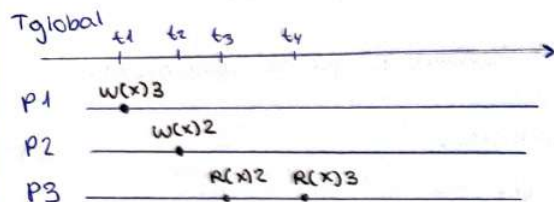 Tglobal t1 t2 t3 t4
W(x)3
P1
W(x)2
P2
R(x)2 R(x)3
P3